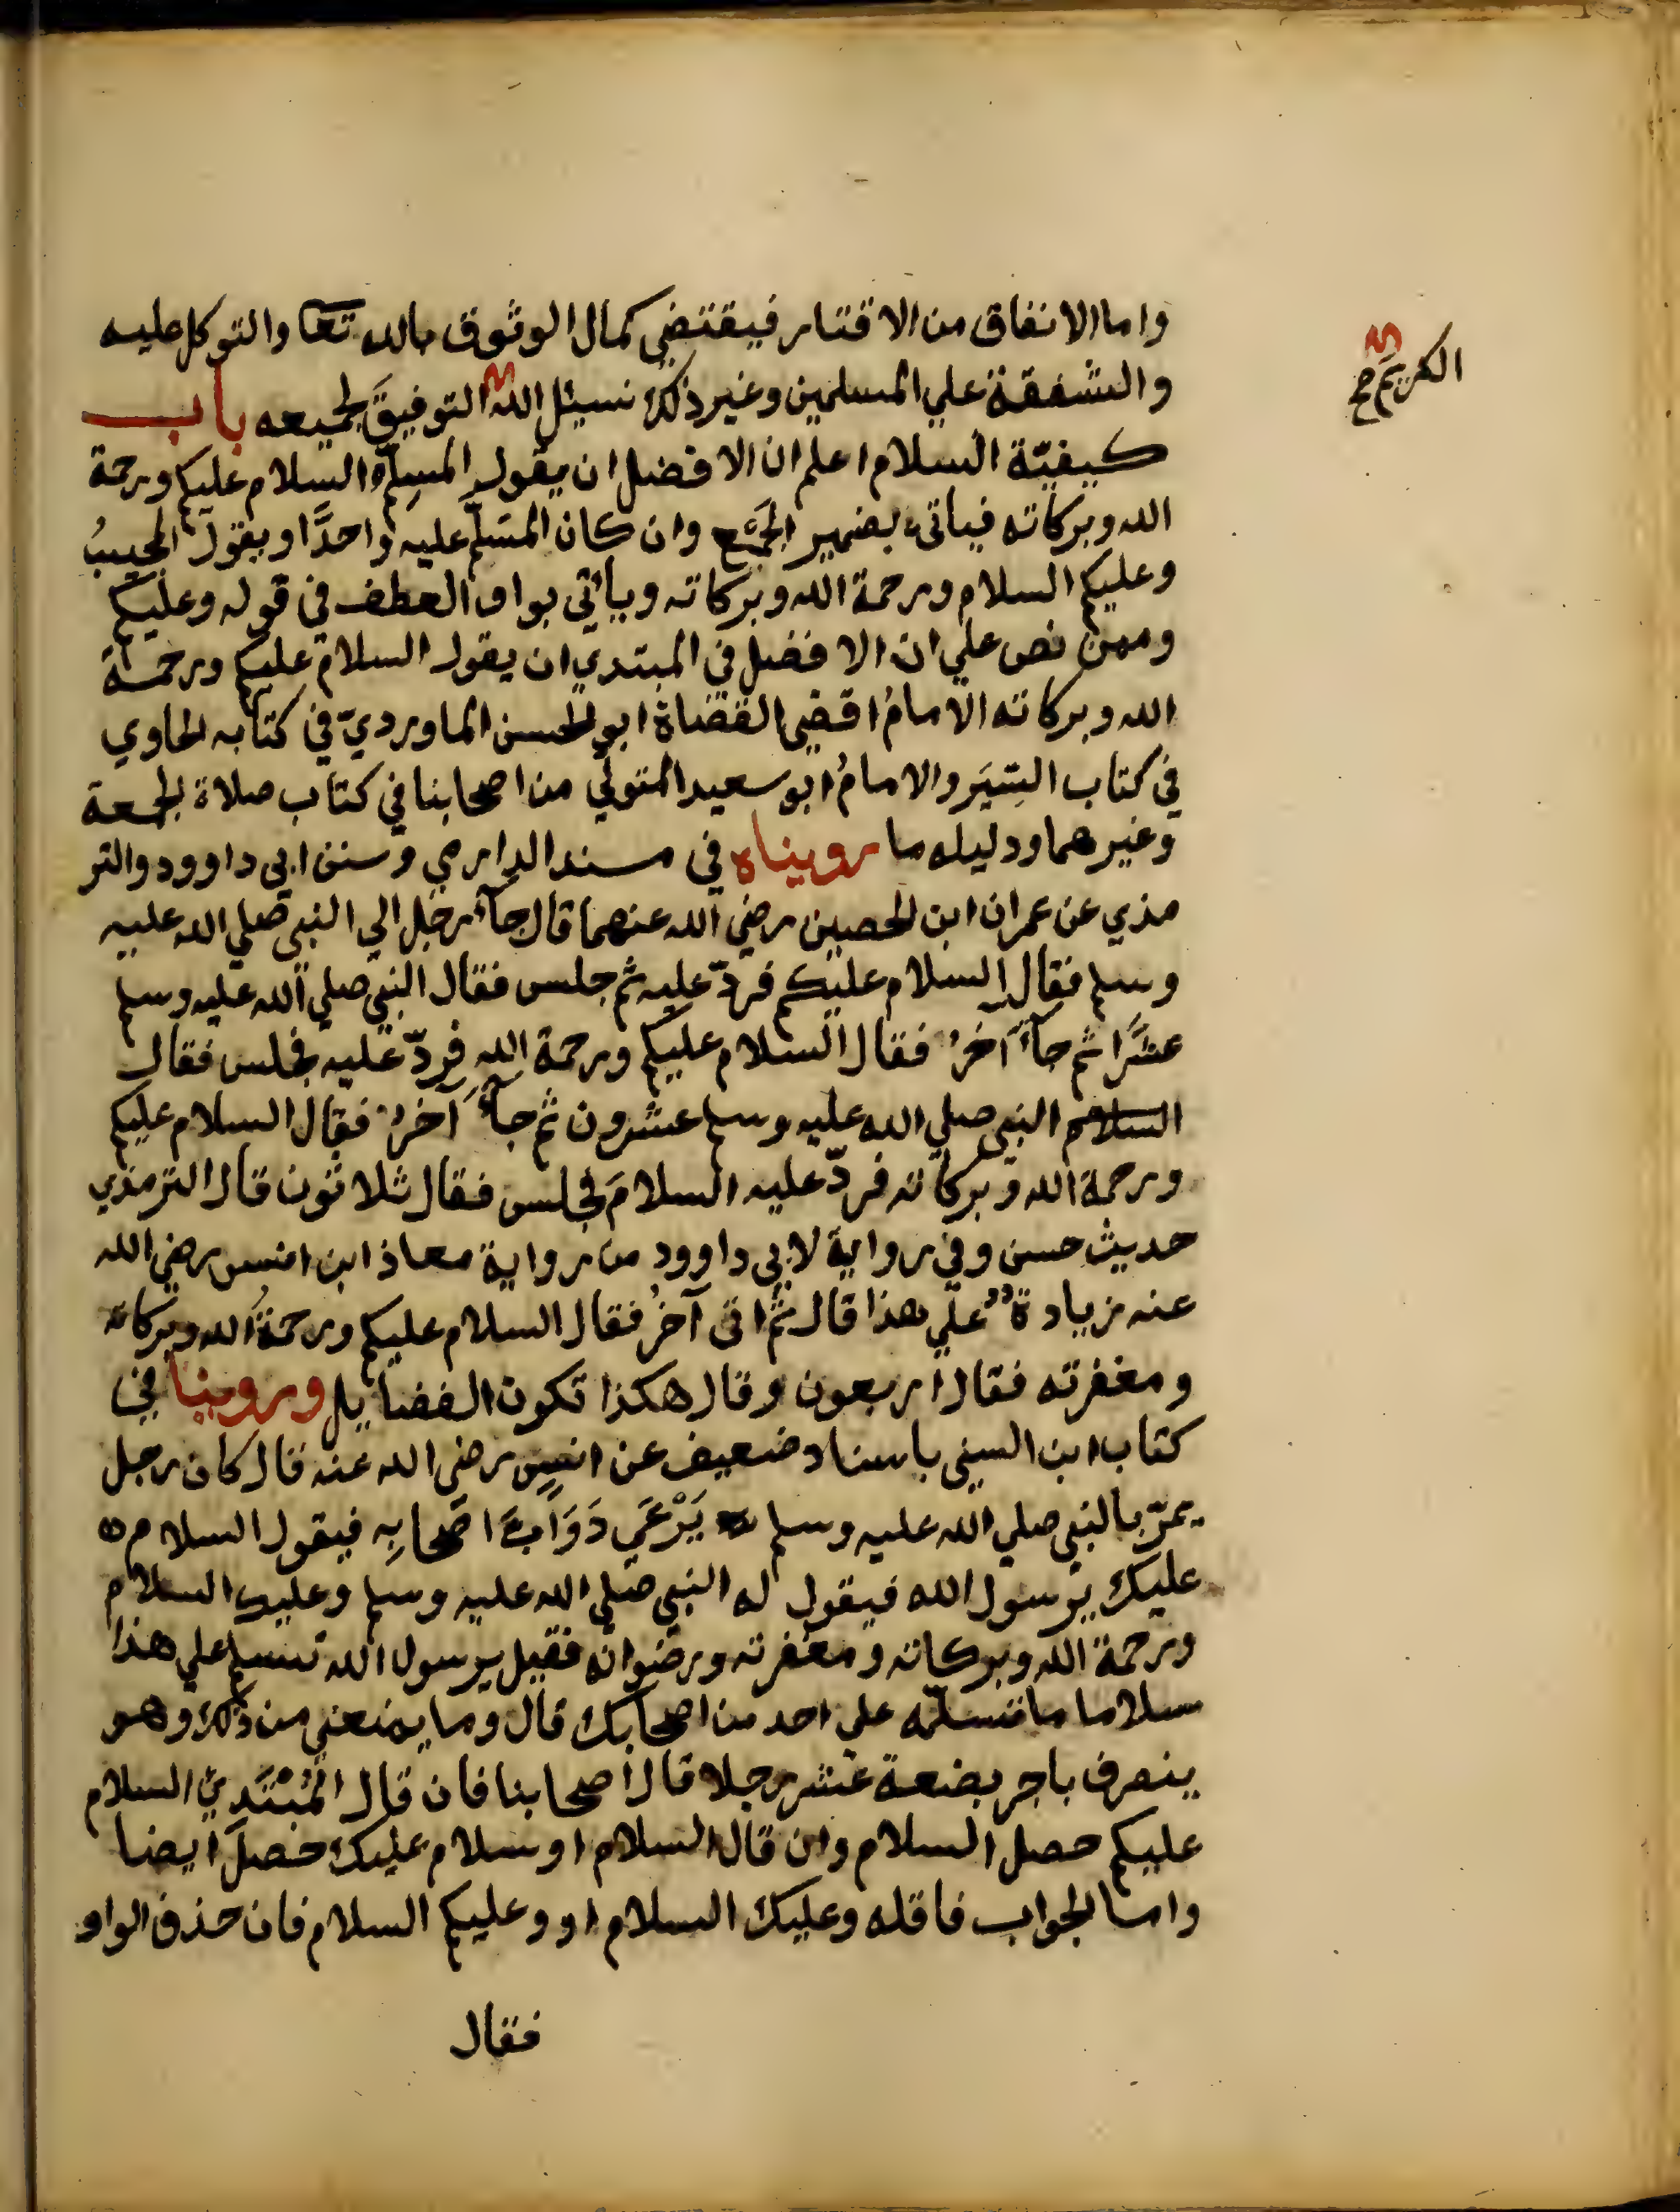 واما الانفاق من الاقتار فيقتضي كمال الوثوق بالله تعا والتوكل عليه
والشفقة علي المسلمين وغير ذلك نسئل الله التوفيقَ لجميعه باب
الكريم صح
كيفيّة السلام اعلم ان الافضل ان يقول المسلِّم السلام عليكم ورحمة
الله وبركاته فياتي بضمير الجمع وان كان المسَلَّم عليه واحدًا ويقول المجيبُ
وعليكم السلام ورحمة الله وبركاته ويأتي بواو العطف في قوله وعليكم
وممن نص علي ان الافضل في المبتدي ان يقول السلام عليكم ورحمة
الله وبركاته الامامُ اقضي القضاة ابو الحسن الماورديّ في كتابه الحاوي
في كتاب السِّيَر والامامُ ابو سعيد المتولي من اصحابنا في كتاب صلاة الجمعة
وغيرهما ودليله ما رويناه في مسند الدارمي وسنن ابي داوود والتر
مذي عن عمران ابن الحصين رضي الله عنهما قال جآء رجل الي النبي صلي الله عليه
وسلم فقال السلام عليكم فردّ عليه ثم جلس فقال النبي صلي الله عليه وسلم
عشرًا ثم جآء آخرُ فقال السلام عليكم ورحمة الله فردّ عليه فجلس فقال
السلام النبي صلي الله عليه وسلم عشرون ثم جآء آخرُ فقال السلام عليكم
ورحمة الله وبركاته فردّ عليه السلامَ فجلس فقال ثلاثون قال الترمذي
حديث حسن وفي رواية لابي داوود من رواية معاذ ابن انس رضي الله
عنه زيادة علي هذا قال ثم اتي آخرُ فقال السلام عليكم ورحمةُ الله وبركاته
ومغفرته فقال اربعون وقال هكذا تكون الفضايل وروينا في
كتاب ابن السني باسناد ضعيف عن انس رضي الله عنه قال كان رجل
يمرّ بالنبي صلي الله عليه وسلم يَرْعَي دَوَابَّ اصحابِه فيقول السلام
عليك يرسول الله فيقول له النبي صلي الله عليه وسلم وعليك السلام
ورحمة الله وبركاته ومغفرته ورضوانه فقيل يرسول الله تسلم علي هذا
سلاما ما تسلّمه علي احد من اصحابك قال وما يمنعني من ذلك وهو
ينصرف باجر بضعة عشر رجلا قال اصحابنا فان قال المُبْتَدِئُ السلام
عليكم حصل السلام وان قال السلام او سلام عليك حصلَ ايضا
واما الجواب فاقله وعليك السلام او وعليكم السلام فان حذف الواو
فقال